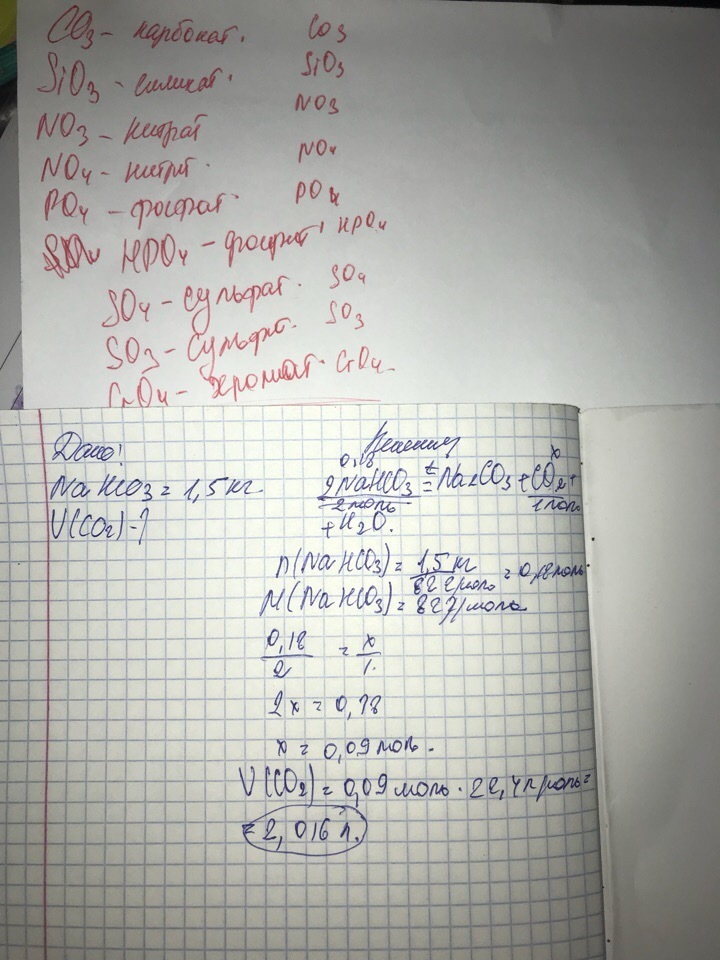 CO3 – карбонат. CO3
SiO3 – силикат. SiO3
NO3 – нитрат NO3
NO4 – нитрит. NO4
PO4 – фосфат. PO4
HPO4 – фосфит HPO4
SO4 – сульфат. SO4
SO3 – сульфит. SO3
CrO4 – хромат. CrO4
Дано: Решение
0,18 x
NaHCO3 = 1,5 кг. 2NaHCO3 =t Na2CO3 + CO2 +
2 моль 1 моль
V(CO2) - ? + H2O.
n(NaHCO3) = 1,5 кг / 82 г/моль = 0,18 моль
M(NaHCO3) = 82 г/моль
0,18 / 2 = x / 1
2x = 0,18
x = 0,09 моль.
V(CO2) = 0,09 моль · 22,4 л/моль =
= 2,016 л.